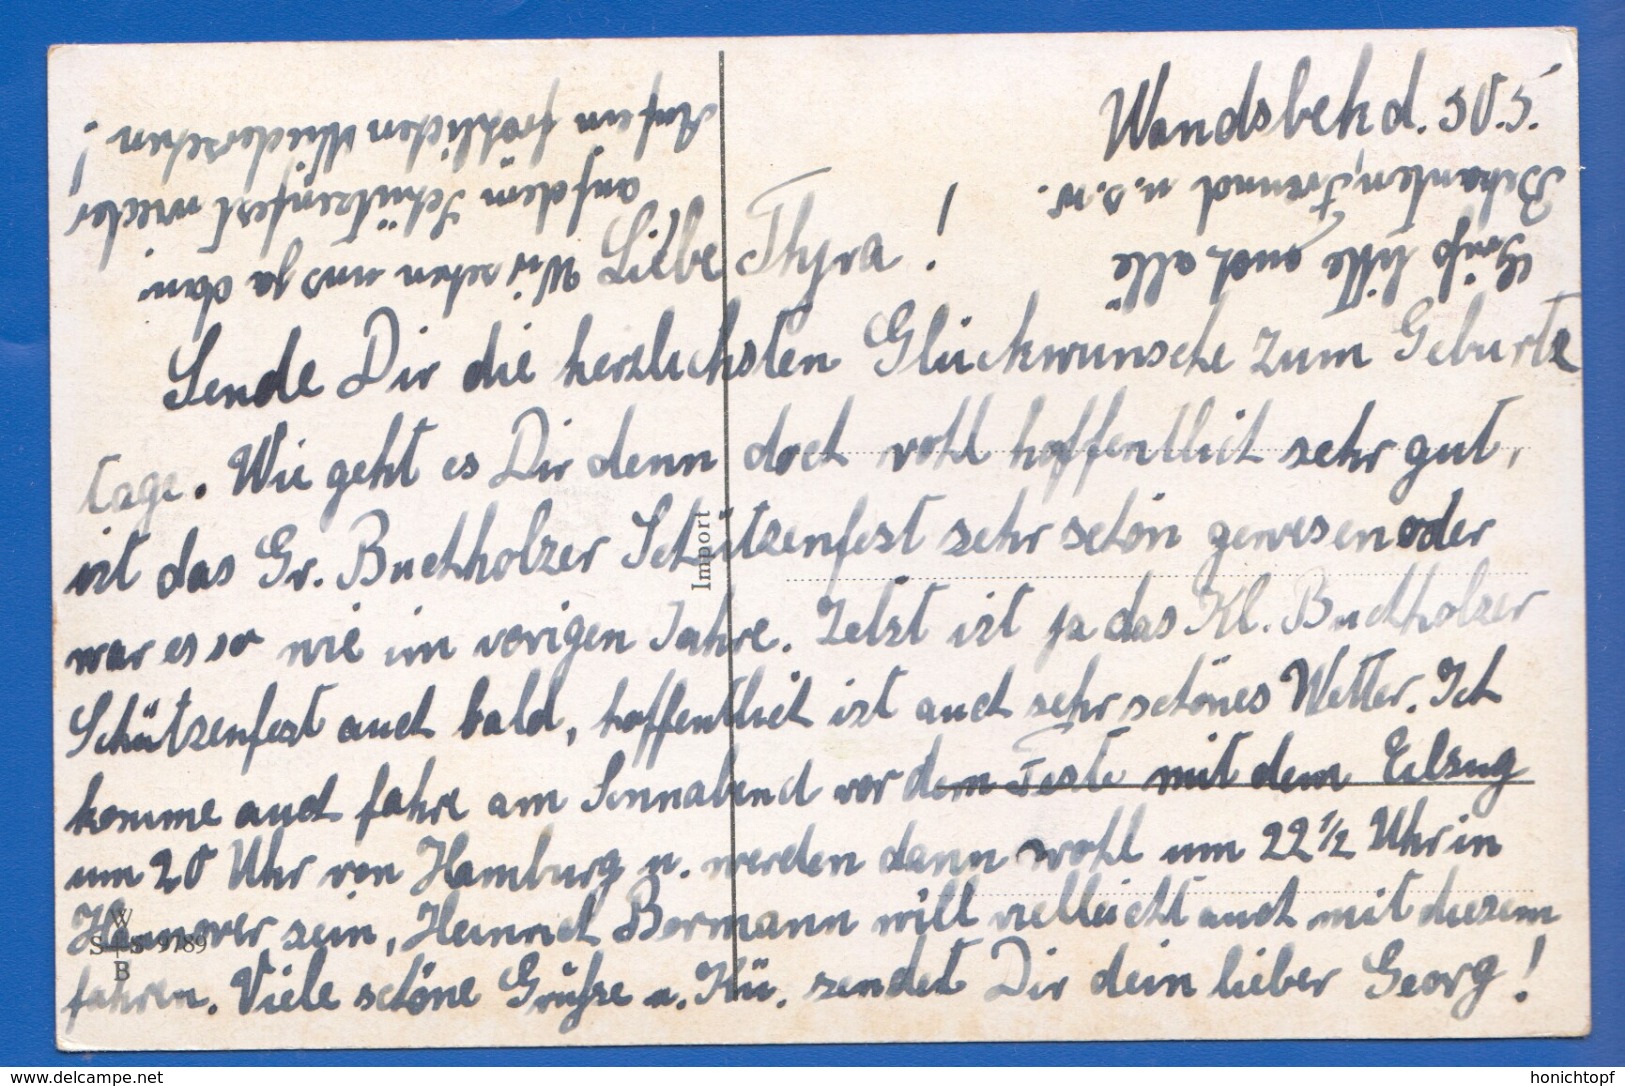 Wandsbek d. 30.5.
Liebe Thyra!
Sende Dir die herzlichsten Glückwünsche zum Geburts
tage. Wie geht es Dir denn doch wohl hoffentlich sehr gut,
ist das Gr. Buchholzer Schützenfest sehr schön gewesen oder
war es so wie im vorigen Jahre. Jetzt ist ja das Kl. Buchholzer
Schützenfest auch bald, hoffentlich ist auch sehr schönes Wetter. Ich
komme auch fahre am Sonnabend vor dem Feste mit dem Eilzug
um 20 Uhr von Hamburg u. werden dann wohl um 22 1/2 Uhr in
Hannover sein, Heinrich Bormann will vielleicht auch mit diesem
fahren. Viele schöne Grüße u. Kü. sendet Dir dein lieber Georg!
Grüß bitte auch alle
Bekannten, Freund u.s.w.
Wir sehen uns ja dann
auf dem Schützenfest wieder
Auf ein fröhliches Wiedersehen!
Import
W
S+S 9789
B
www.delcampe.net
honichtopf